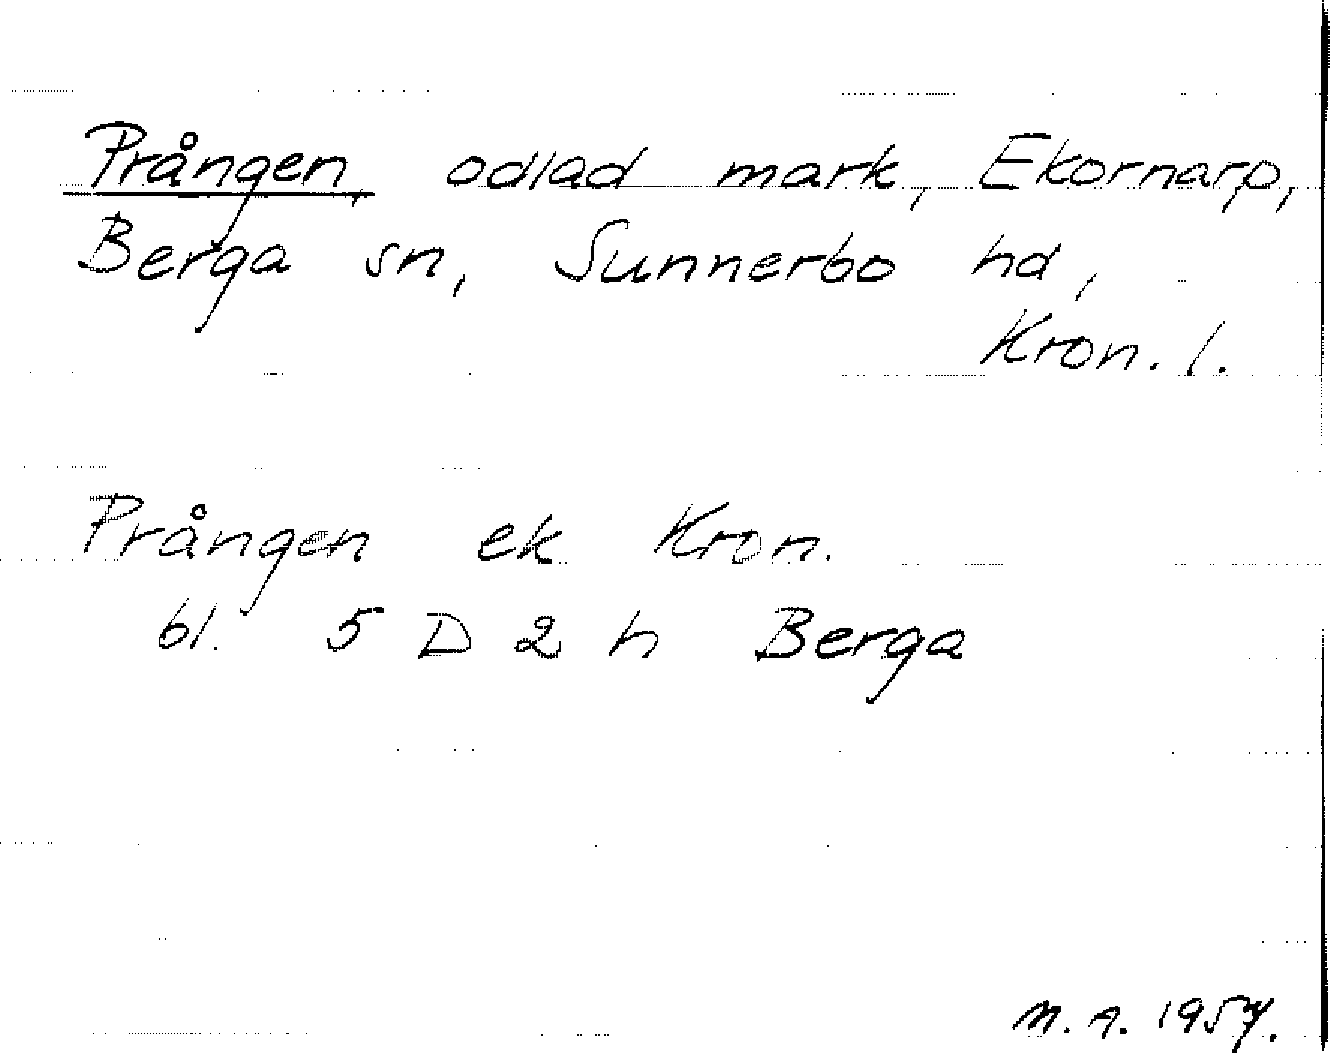 Prången, odlad mark, Ekornarp,
Berga sn, Sunnerbo hd,
Kron. l.
Prången ek Kron.
bl. 5 D 2 h Berga
M. A. 1957.